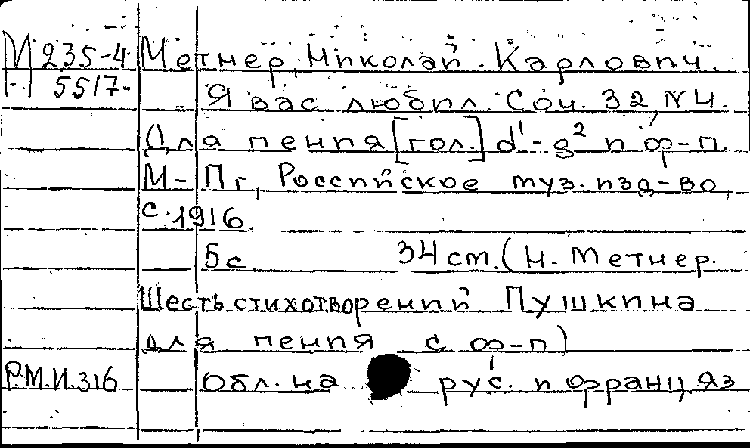 М 235-4 Метнер, Николай Карлович.
5517- Я вас любил. Соч. 32, N4.
Для пения [гол.] d¹-g² и ф-п.
М-Пг, Российское муз. изд-во,
с.1916.
5с 34 см. (Н. Метнер.
Шесть стихотворений Пушкина
для пения с ф-п)
Р.М.И.316 Обл. на рус. и франц. яз